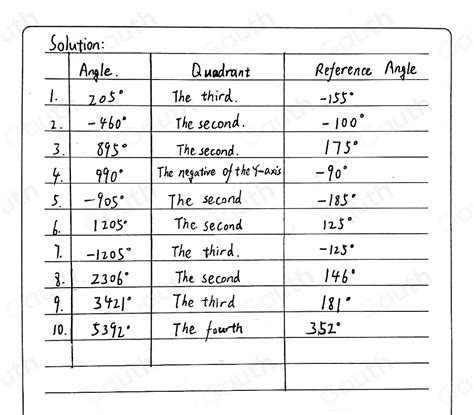 Solution:
Angle. Quadrant Reference Angle
1. 205° The third. -155°
2. -460° The second. -100°
3. 895° The second. 175°
4. 990° The negative of the Y-axis -90°
5. -905° The second -185°
6. 1205° The second 125°
7. -1205° The third. -125°
8. 2306° The second 146°
9. 3421° The third 181°
10. 5392° The fourth 352°